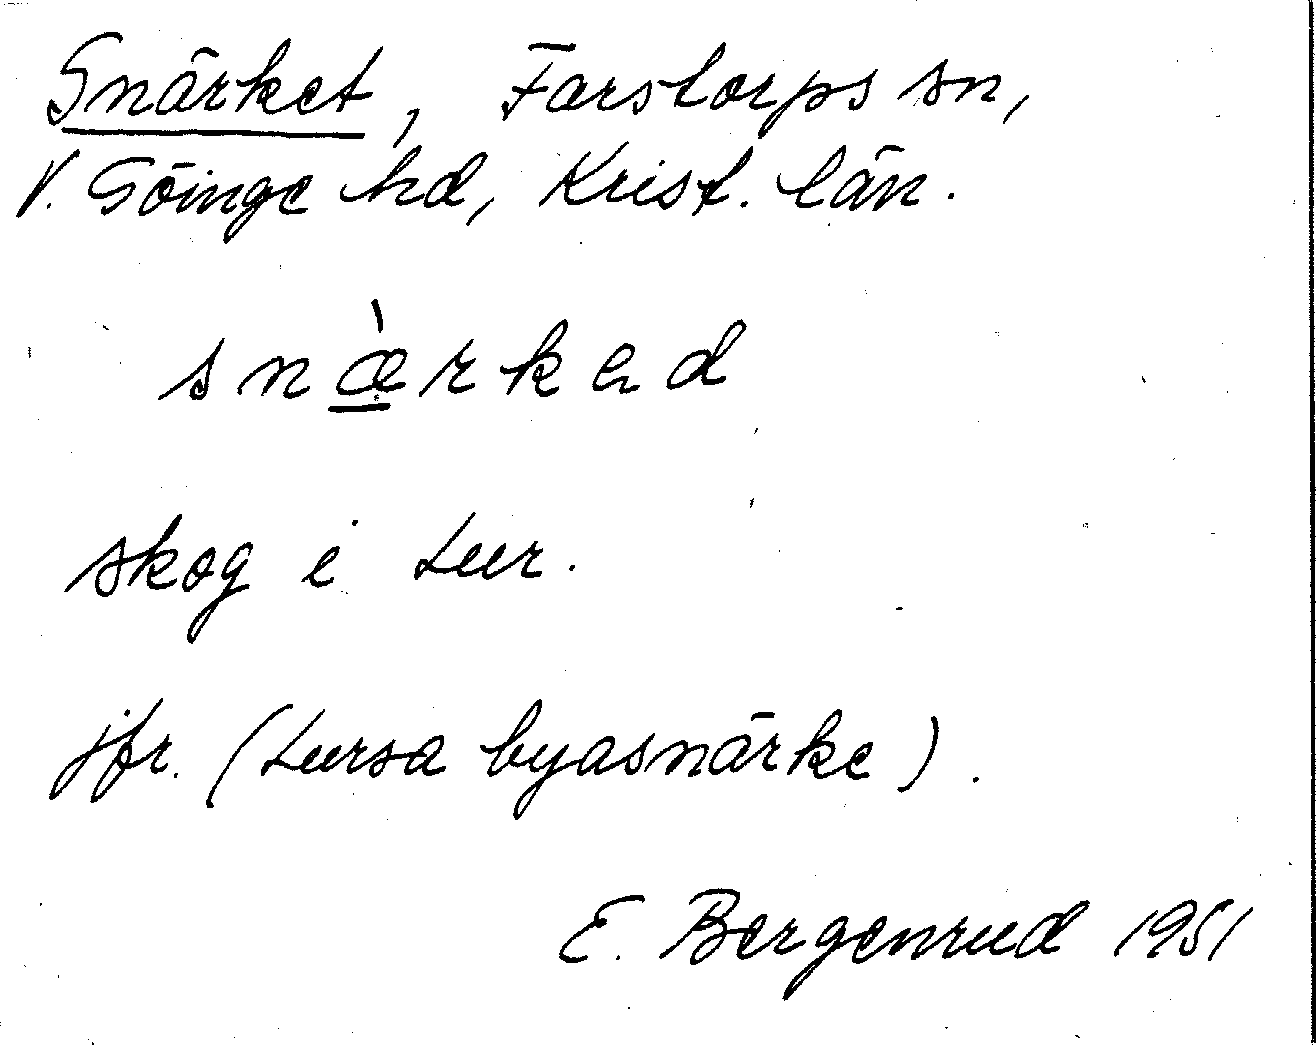 Snärket, Farstorps sn,
V. Göinge hd, Krist. län.
snæ̀rkəd
skog i Lur.
jfr. (Lursa byasnärke).
E. Bergenrud 1951